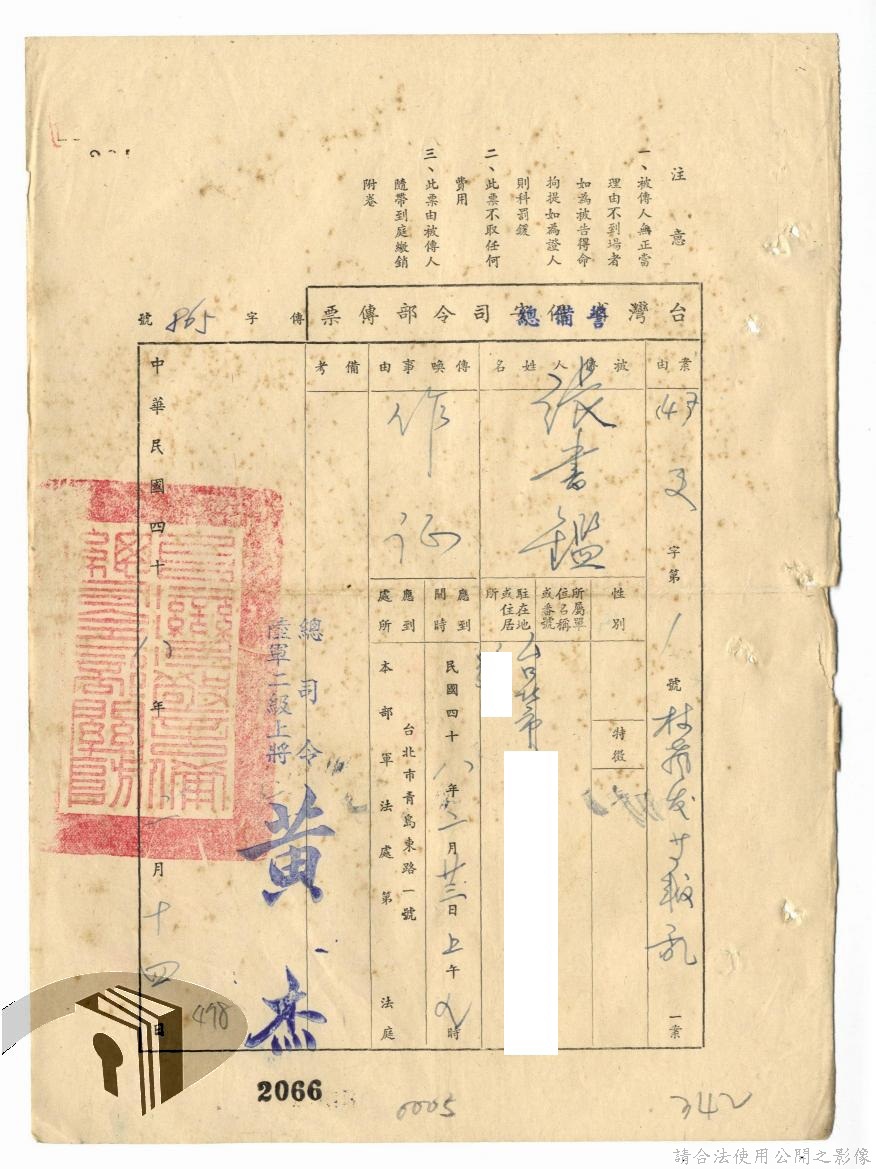 注意
一、被傳人無正當
理由不到場者
如為被告得命
拘提如為證人
則科罰鍰
二、此票不取任何
費用
三、此票由被傳人
隨帶到庭繳銷
附卷
台灣警備總司令部傳票
傳字865號
案由
字第1號
一案
被傳人姓名
張書鑑
性別
特徵
所屬單
位名稱
或番號
駐在地
或住居
所
台北市
傳喚事由
作证
應到
關時
民國四十八年二月廿三日上午九時
應到
處所
台北市青島東路一號
本部軍法處第法庭
備考
總司令
陸軍二級上將
黃杰
中華民國四十八年二月十四日
498
2066
0005
342
請合法使用公開之影像